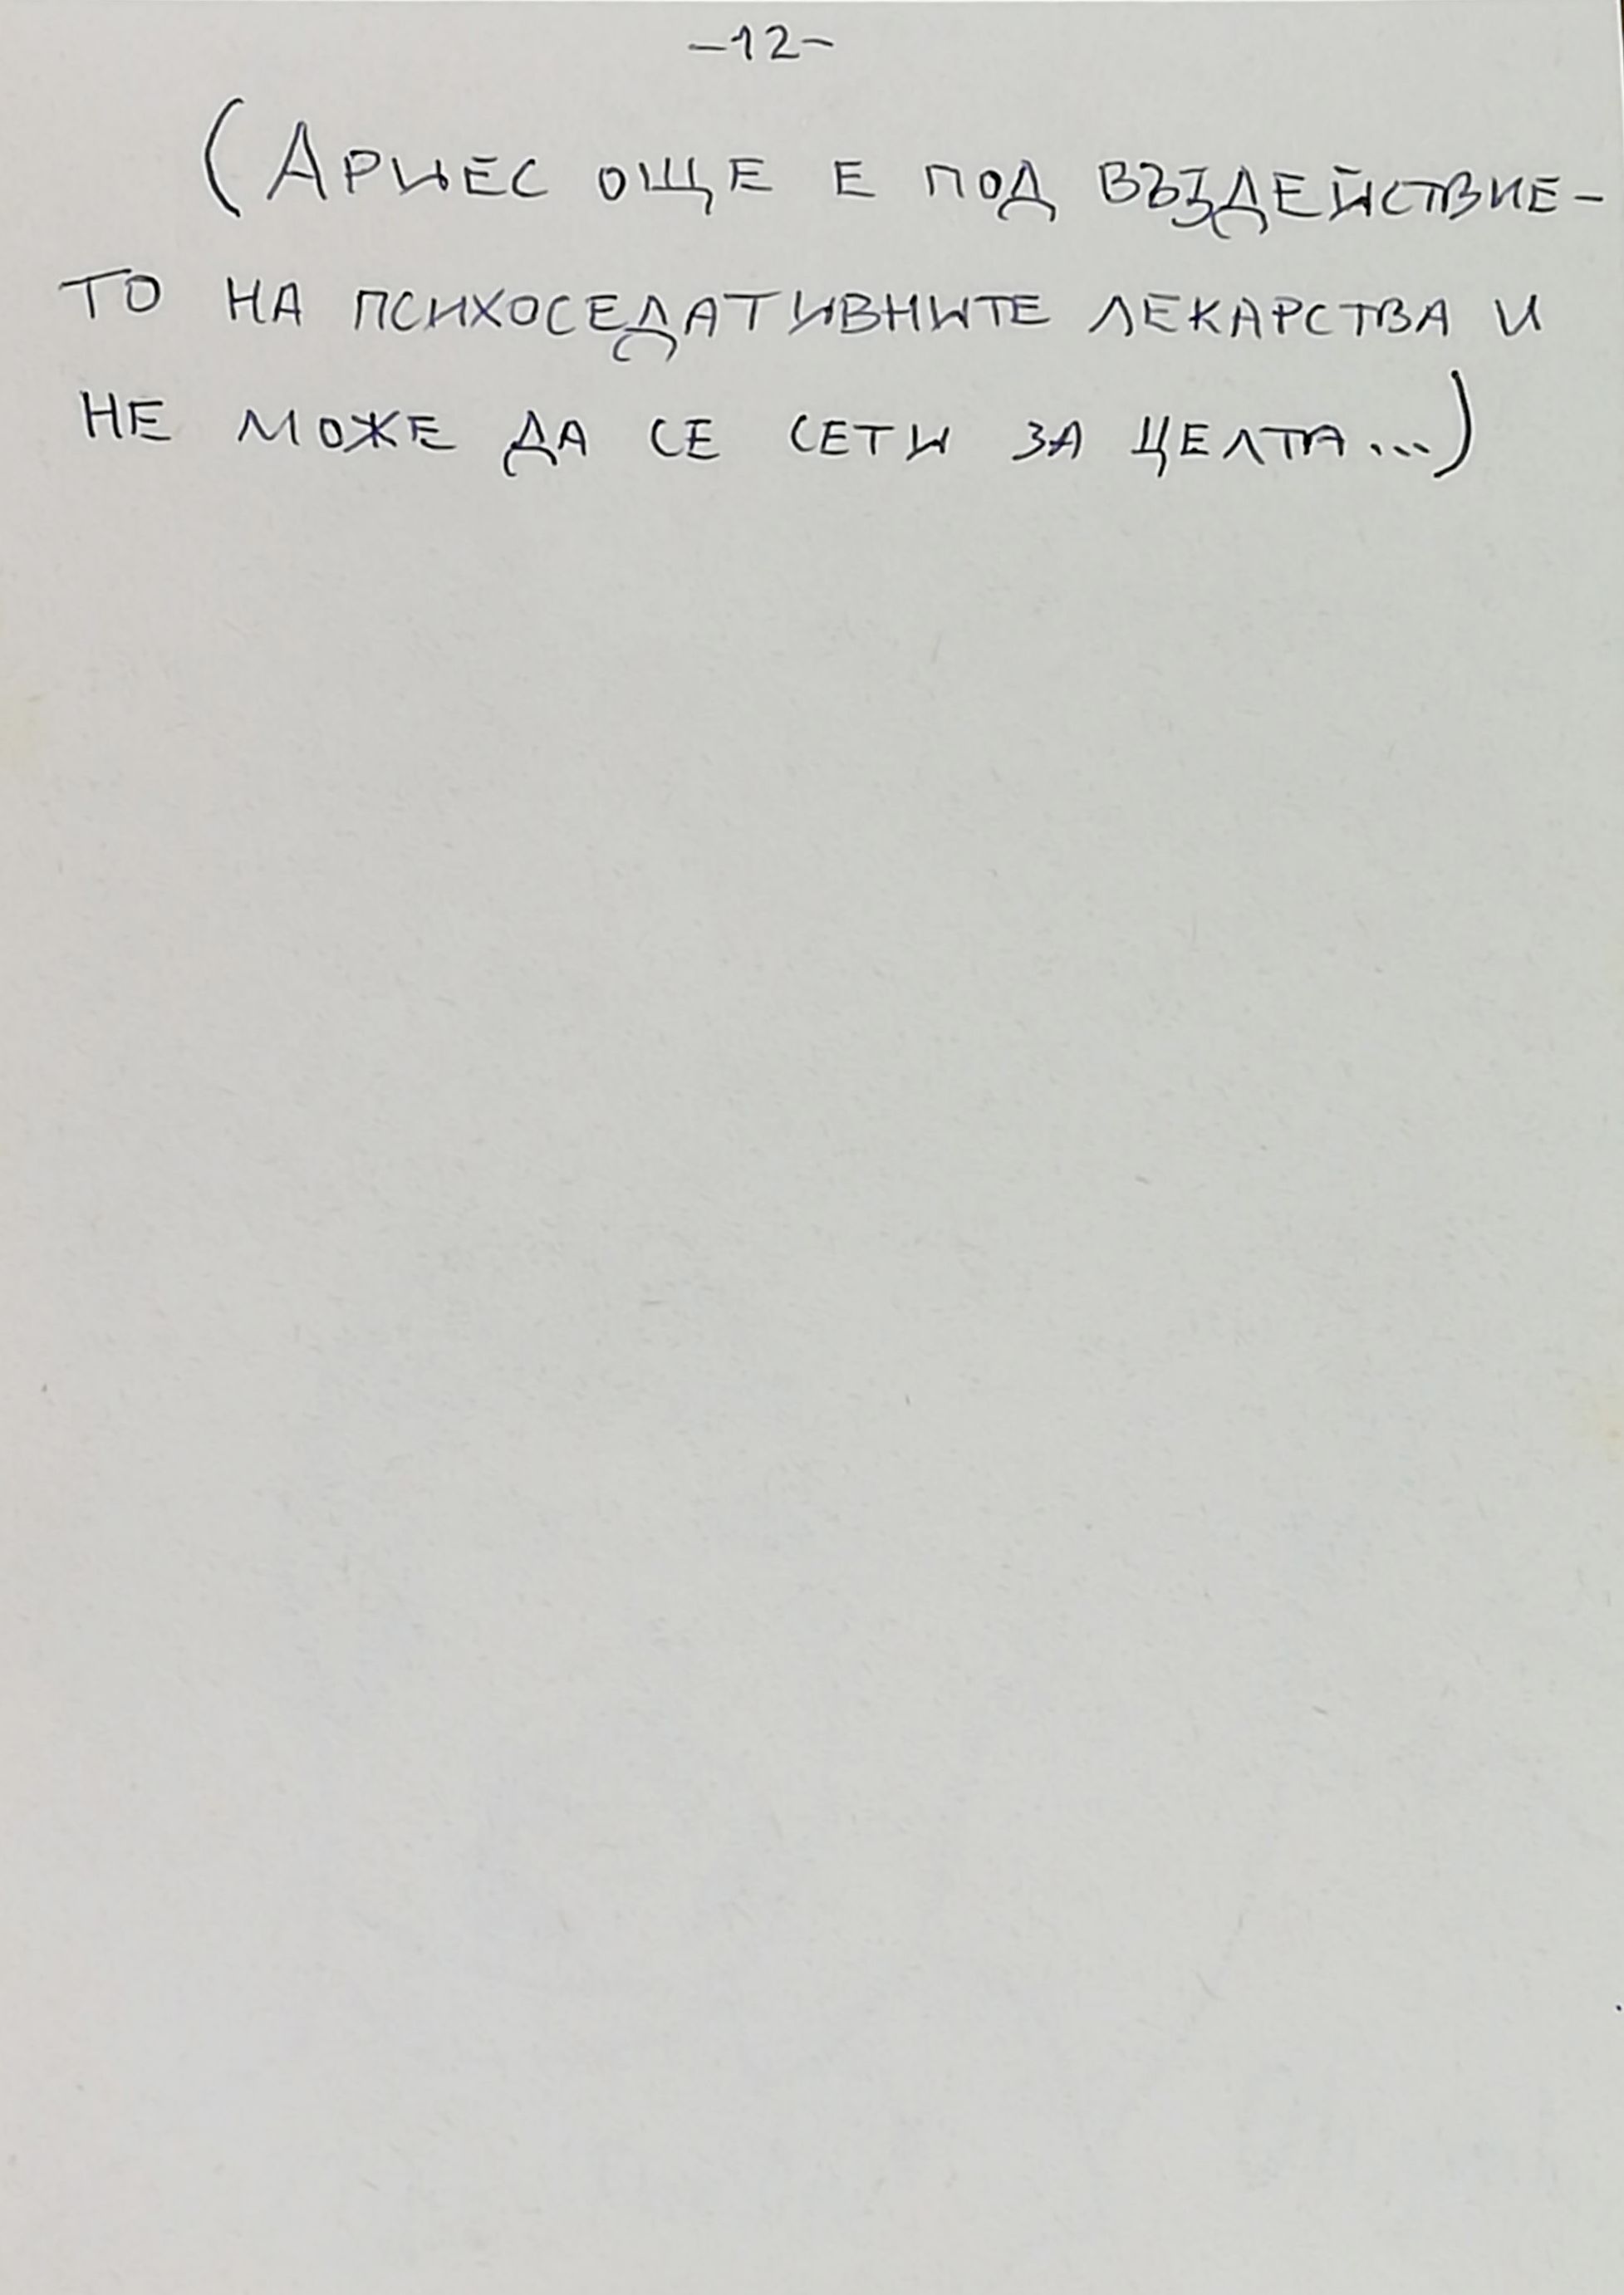 -12-
(АРИЕС ОЩЕ Е ПОД ВЪЗДЕЙСТВИЕ-
ТО НА ПСИХОСЕДАТИВНИТЕ ЛЕКАРСТВА И
НЕ МОЖЕ ДА СЕ СЕТИ ЗА ЦЕЛТА...)